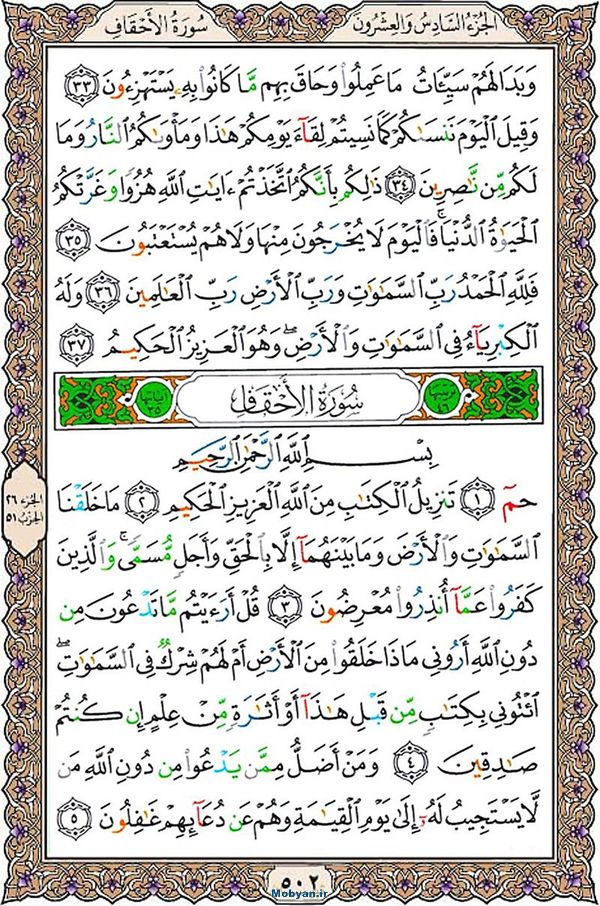 الجزء السادس والعشرون
سورة الأحقاف
وَبَدَا لَهُمْ سَيِّـَٔاتُ مَا عَمِلُوا۟ وَحَاقَ بِهِم مَّا كَانُوا۟ بِهِۦ يَسْتَهْزِءُونَ ٣٣
وَقِيلَ ٱلْيَوْمَ نَنسَىٰكُمْ كَمَا نَسِيتُمْ لِقَآءَ يَوْمِكُمْ هَـٰذَا وَمَأْوَىٰكُمُ ٱلنَّارُ وَمَا
لَكُم مِّن نَّـٰصِرِينَ ٣٤ ذَٰلِكُم بِأَنَّكُمُ ٱتَّخَذْتُمْ ءَايَـٰتِ ٱللَّهِ هُزُوًا وَغَرَّتْكُمُ
ٱلْحَيَوٰةُ ٱلدُّنْيَا ۚ فَٱلْيَوْمَ لَا يُخْرَجُونَ مِنْهَا وَلَا هُمْ يُسْتَعْتَبُونَ ٣٥
فَلِلَّهِ ٱلْحَمْدُ رَبِّ ٱلسَّمَـٰوَٰتِ وَرَبِّ ٱلْأَرْضِ رَبِّ ٱلْعَـٰلَمِينَ ٣٦ وَلَهُ
ٱلْكِبْرِيَآءُ فِى ٱلسَّمَـٰوَٰتِ وَٱلْأَرْضِ ۖ وَهُوَ ٱلْعَزِيزُ ٱلْحَكِيمُ ٣٧
ترتيبها ٤٦
سُورَةُ الأَحْقَافِ
آياتها ٣٥
بِسْمِ ٱللَّهِ ٱلرَّحْمَـٰنِ ٱلرَّحِيمِ
حمٓ ١ تَنزِيلُ ٱلْكِتَـٰبِ مِنَ ٱللَّهِ ٱلْعَزِيزِ ٱلْحَكِيمِ ٢ مَا خَلَقْنَا
ٱلسَّمَـٰوَٰتِ وَٱلْأَرْضَ وَمَا بَيْنَهُمَآ إِلَّا بِٱلْحَقِّ وَأَجَلٍ مُّسَمًّى ۚ وَٱلَّذِينَ
كَفَرُوا۟ عَمَّآ أُنذِرُوا۟ مُعْرِضُونَ ٣ قُلْ أَرَءَيْتُم مَّا تَدْعُونَ مِن
دُونِ ٱللَّهِ أَرُونِى مَاذَا خَلَقُوا۟ مِنَ ٱلْأَرْضِ أَمْ لَهُمْ شِرْكٌ فِى ٱلسَّمَـٰوَٰتِ ۖ
ٱئْتُونِى بِكِتَـٰبٍ مِّن قَبْلِ هَـٰذَآ أَوْ أَثَـٰرَةٍ مِّنْ عِلْمٍ إِن كُنتُمْ
صَـٰدِقِينَ ٤ وَمَنْ أَضَلُّ مِمَّن يَدْعُوا۟ مِن دُونِ ٱللَّهِ مَن
لَّا يَسْتَجِيبُ لَهُۥٓ إِلَىٰ يَوْمِ ٱلْقِيَـٰمَةِ وَهُمْ عَن دُعَآئِهِمْ غَـٰفِلُونَ ٥
الجزء ٢٦
الحزب ٥١
٥٠٢
Mobyan.ir